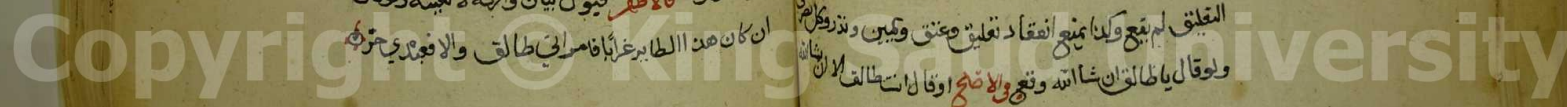 التعليق لم يقع وكذا يمنع انعقاد تعليق وعتق ويمين ونذر وكل
ولو قال يا طالق ان شا الله وقع في الاصح او قال انت طالق الا ان شا الله
فالاظهر
ان كان هذا الطاير غرابا فامراتي طالق والا فعبدي حر
Copyright © King Saud University